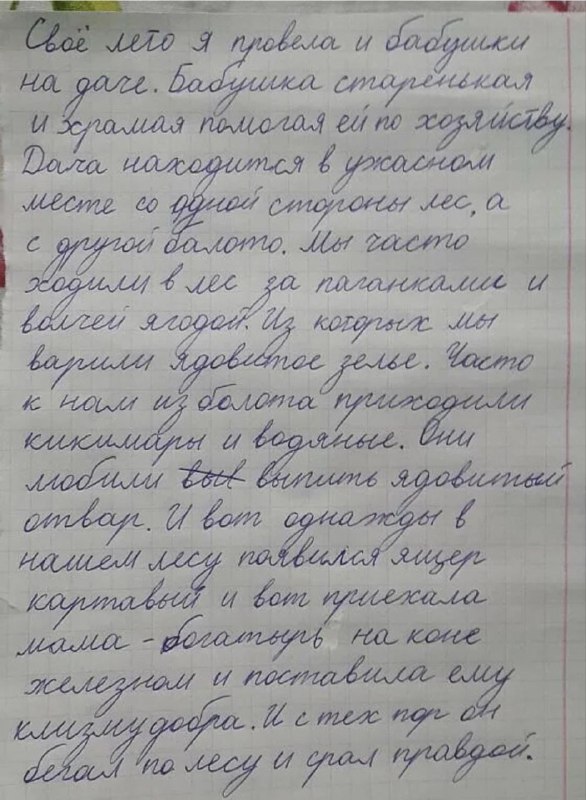 Своё лето я провела и бабушки
на даче. Бабушка старенькая
и храмая помогая ей по хозяйству.
Дача находится в ужасном
месте со одной стороны лес, а
с другой балото. Мы часто
ходили в лес за паганками и
волчей ягодой. Из которых мы
варили ядовитое зелье. Часто
к нам из болота приходили
кикимары и водяные. Они
любили выв выпить ядовитый
отвар. И вот однажды в
нашем лесу появился ящер
картавый и вот приехала
мама - богатырь на коне
железном и поставила ему
клизму добра. И с тех пор он
бегал по лесу и срал правдой.